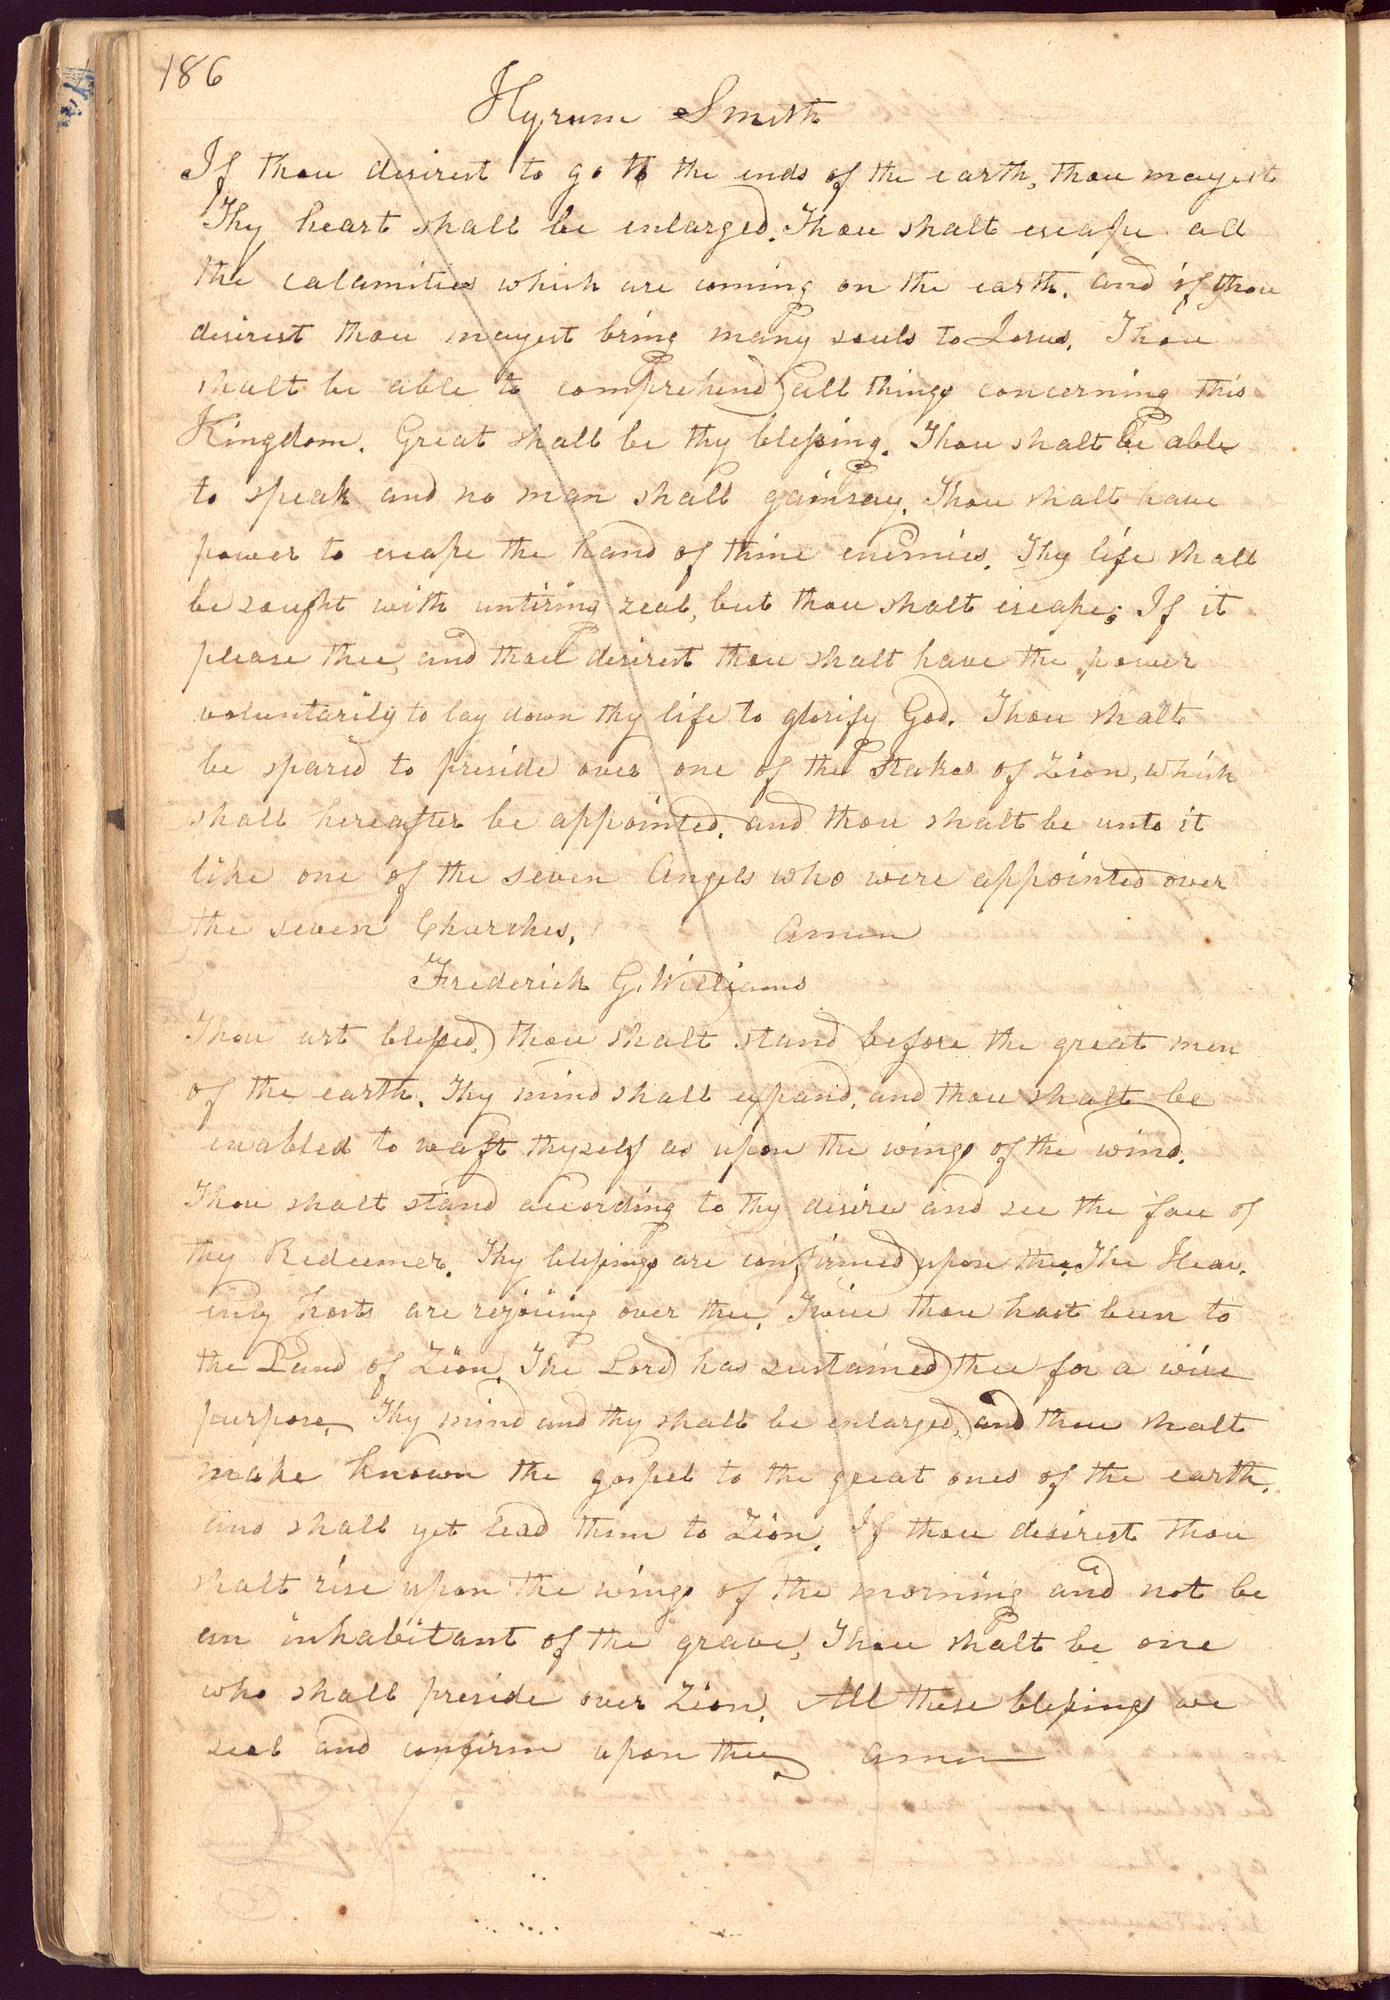 186
Hyrum Smith
If thou desirest to go to the ends of the earth, thou mayest
Thy heart shall be enlarged. Thou shalt escape all
the calamities which are coming on the earth. and if thou
desirest thou mayest bring many souls to Jesus. Thou
shalt be able to comprehend all things concerning this
Kingdom. Great shall be thy blessing. Thou shalt be able
to speak and no man shall gainsay. Thou shalt have
power to escape the hand of thine enemies. Thy life shall
be sought with untiring zeal, but thou shalt escape; If it
please thee, and thou desirest thou shalt have the power
voluntarily to lay down thy life to glorify God. Thou shalt
be spared to preside over one of the Stakes of Zion, which
shall hereafter be appointed, and thou shalt be unto it
like one of the seven Angels who were appointed over
the seven Churches, Amen
Frederick G. Williams
Thou art blessed, thou shalt stand before the great men
of the earth. Thy mind shall expand, and thou shalt be
enabled to waft thyself as upon the wings of the wind.
Thou shalt stand according to thy desires and see the face of
thy Redeemer. Thy blessings are confirmed upon thee. The Heav-
enly hosts are rejoicing over thee. Twice thou hast been to
the Land of Zion. The Lord has sustained thee for a wise
purpose. Thy mind and thy shall be enlarged, and thou shalt
make known the gospel to the great ones of the earth,
and shall yet lead them to Zion. If thou desirest thou
shalt rise upon the wings of the morning and not be
an inhabitant of the grave, Thou shalt be one
who shall preside over Zion. All these blessings we
seal and confirm upon thee, amen